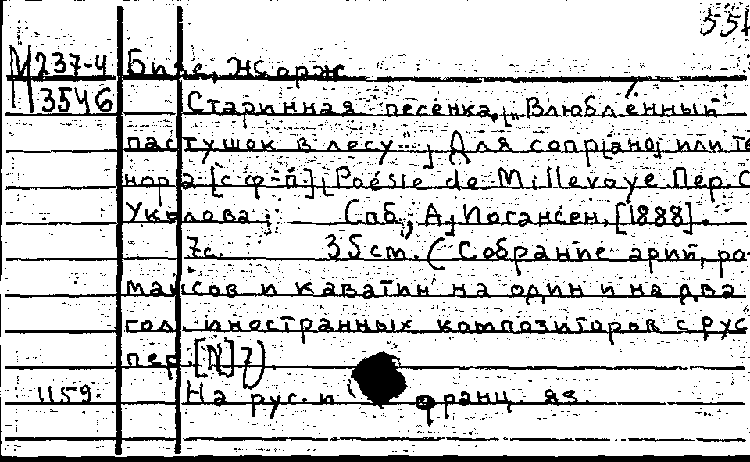 551
М 237-4 Бизе, Жорж
3546 Старинная песенка. „Влюбленный
пастушок в лесу..." Для сопр[ано] или те
нора [с ф-п.] Poésie de Millevoye. Пер. С
Уколова; Спб., А. Иогансен, [1888].
7с. 35 см. (Собрание арий, ро
мансов и каватин на один и на два
гол. иностранных композиторов с рус
пер. [N] 7).
1159. На рус. и франц. яз.